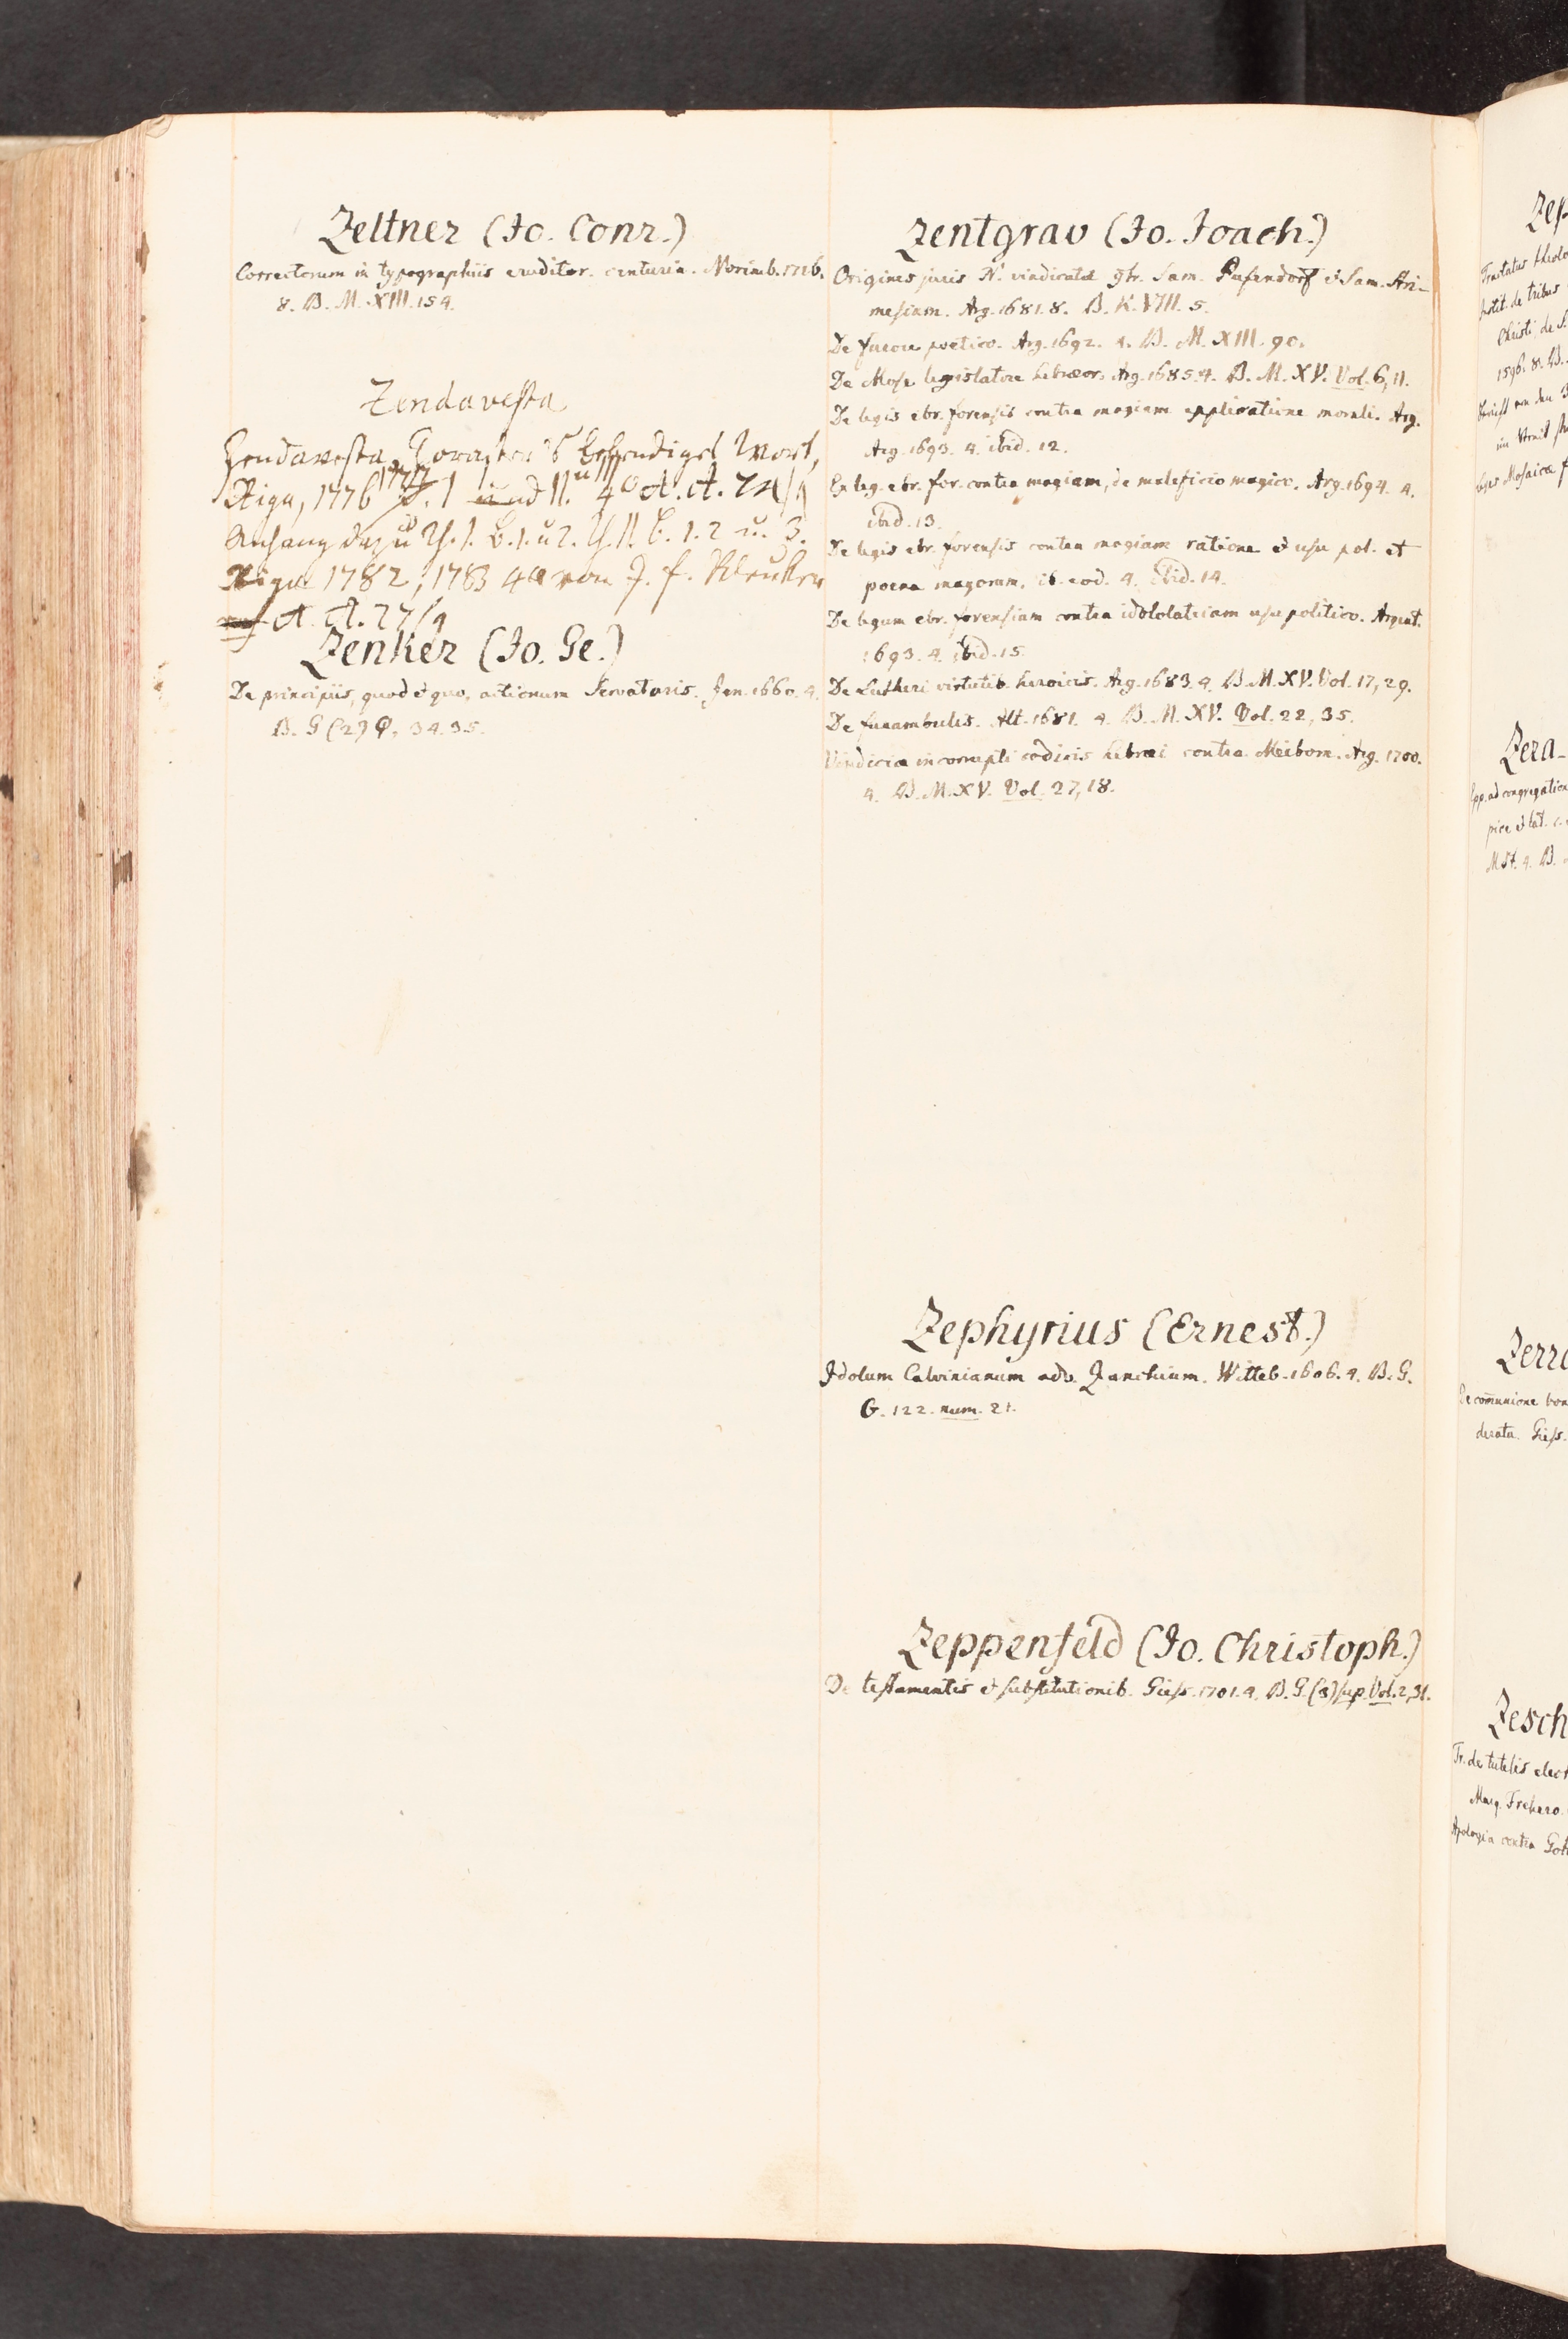 Zeltner (Jo. Conr.)
Correctorum in typographiis eruditor. centuria. Norimb. 1716.
8. B. M. XIII. 154.
Zendavesta
Zendavesta, Zoroasters lebendiges Wort,
Riga, 1776 1777 I und II. u III 4o A. A. 24/9
Anhang dazu Th. I. B. 1. u 2. Th. II. B. 1. 2 u. 3.
Riga 1782, 1783 4o von J. F. Kleuker
A. A. 27/9
Zenker (Jo. Ge.)
De principiis, quod & quo, actionum Servatoris. Jen. 1660. 4.
B. G (2) 9, 34. 35.
Zentgrav (Jo. Joach.)
Origines juris N. vindicatæ gtr. Sam. Pufendorf & Sam. Stri-
mesium. Arg. 1681. 8. B. K. VIII. 5.
De furore poetico. Arg. 1692. 4. B. M. XIII. 90.
De Mose legislatore hebræor. Arg. 1685. 4. B. M. XV. Vol. 6, 11.
De legis ebr. forensis contra magiam applicatione morali. Arg.
Arg. 1693. 4. ibid. 12.
Ex leg. ebr. for. contra magiam, de maleficio magico. Arg. 1694. 4.
ibid. 13.
De legis ebr. forensis contra magiam ratione & usu pol. et
poena magorum. ib. eod. 4. ibid. 14.
De legum ebr. forensium contra idololatriam usu politico. Argent.
1693. 4. ibid. 15.
De Lutheri virtutib. heroicis. Arg. 1683. 4. B. M. XV. Vol. 17, 29.
De funambulis. Alt. 1681. 4. B. M. XV. Vol. 22, 35.
Vindiciæ incorrupti codicis hebræi contra Meibom. Arg. 1700.
4. B. M. XV. Vol. 27, 18.
Zephyrius (Ernest.)
Idolum Calvinianum adv. Zanchium. Witteb. 1606. 4. B. G.
G. 122. num. 21.
Zeppenfeld (Jo. Christoph.)
De testamentis & substitutionib. Giess. 1701. 4. B. G. (3) sup. Vol. 2, 31.
Zep
Tractatus theolo
Instit. de tribus
Christi, de S.
1596. 8. B.
Bericht von den 3
im Streit
leges Mosaicæ f
Zera-
Epp. ad congregation
Mst. 4. B.
Zerr
De com̄unione bon
derata. Giess.
Zesch
Tr. de tutelis elect
Marq. Frehero.
Apologia contra Got